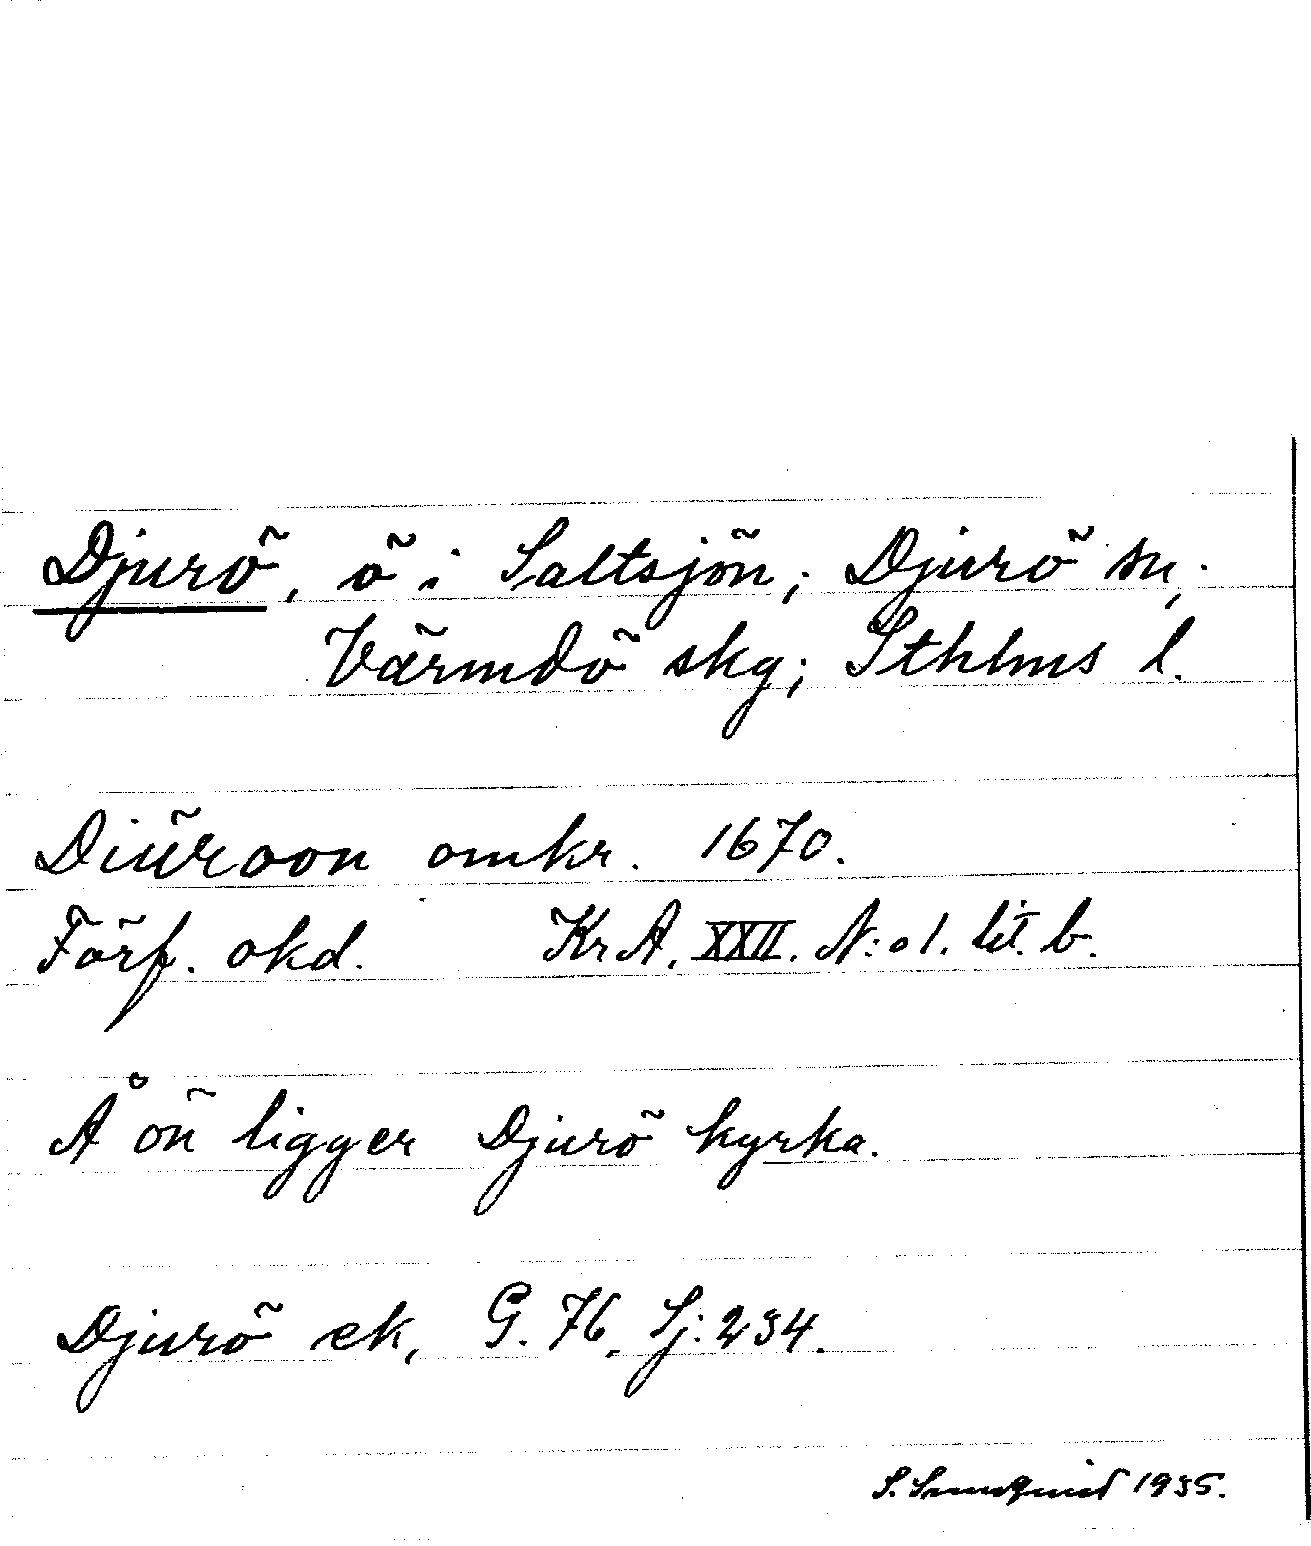 Djurö, ö i Saltsjön; Djurö sn;
Värmdö skg; Sthlms l.
Diüroon omkr. 1670.
Förf. okd. Kr A. XXII. N:o 1. lit. b.
Å ön ligger Djurö kyrka.
Djurö ek, G. 76, Sj: 234.
S. 1935.